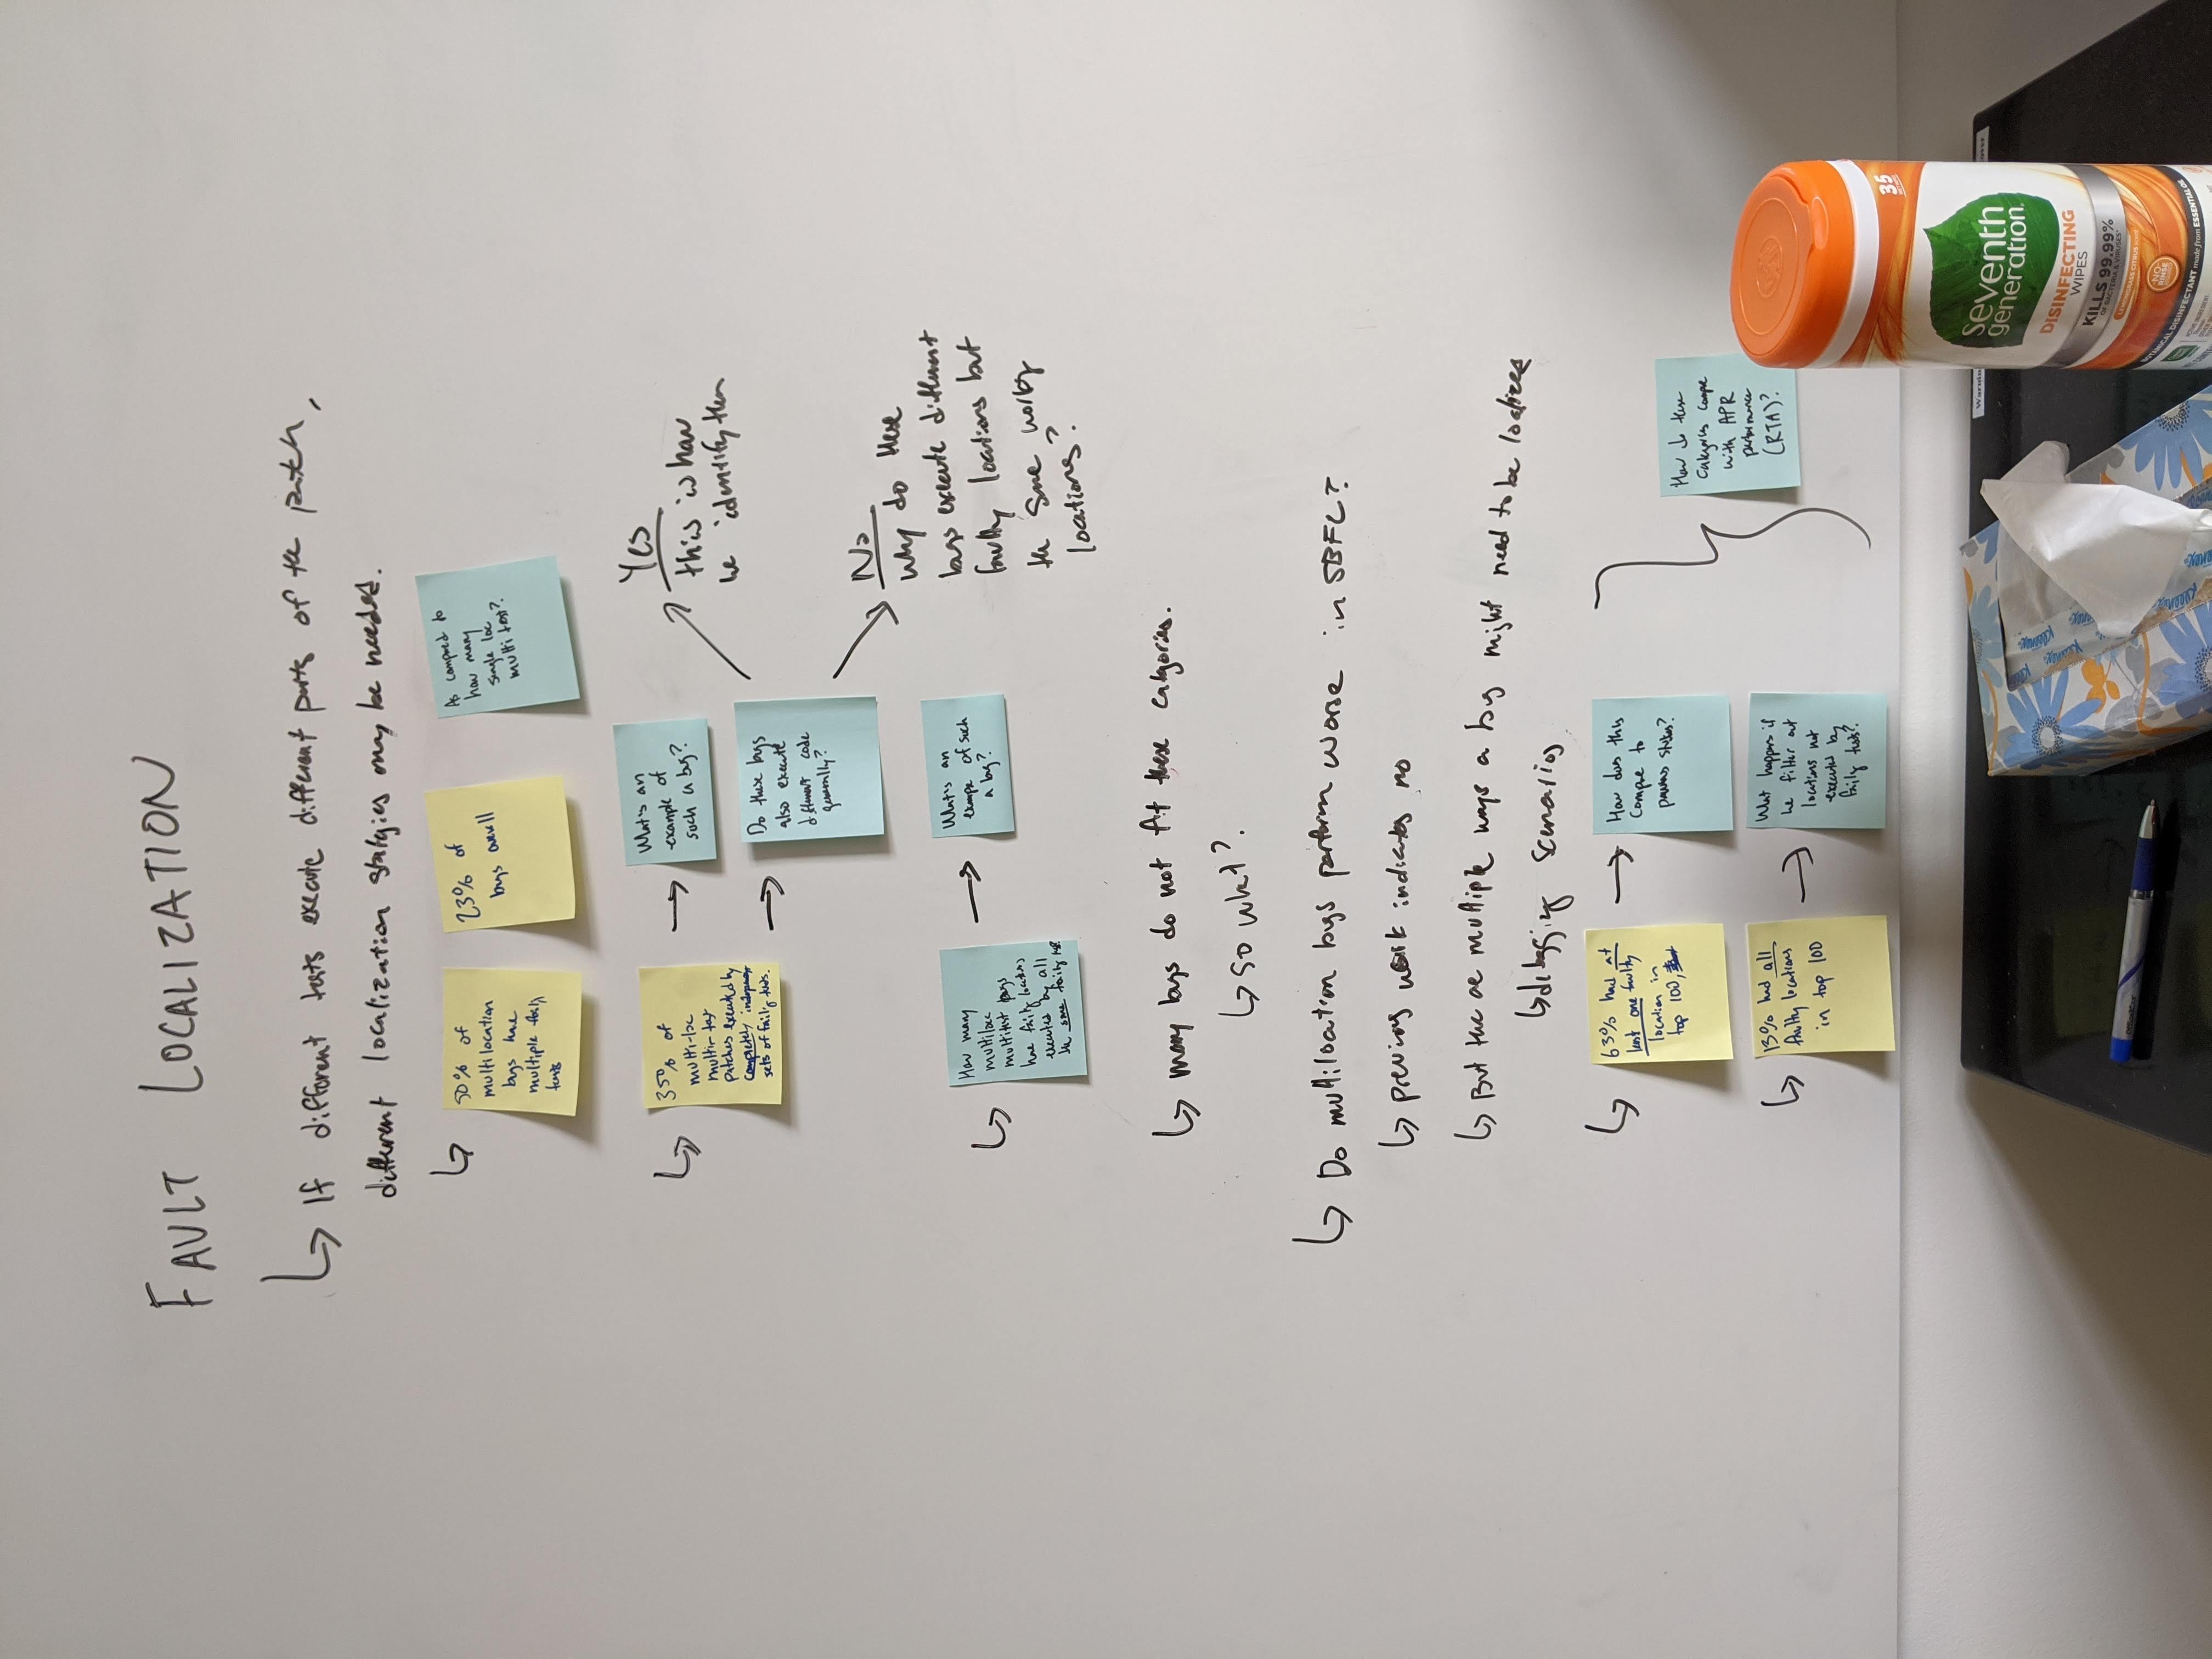 FAULT LOCALIZATION
If different tests execute different parts of the patch,
different localization statgies may be needed.
50% of
multilocation
bugs have
multiple failing
tests
23% of
bugs overall
As compared to
how many
single loc
multi test?
35% of
multi-loc
multi-test
patches executed by
completely independent
sets of failing tests.
What's an
example of
such a bug?
Do these bugs
also execute
different code
generally?
Yes
this is how
we identify them
No
why do these
bugs execute different
faulty locations but
the same working
locations?
How many
multiloc
multitest bugs
have faulty locations
executed by all
the same failing tests?
What's an
example of such
a bug?
many bugs do not fit these catgories.
so what?
Do multilocation bugs perform worse in SBFL?
previous work indicates no
But there are multiple ways a bug might need to be localized
debugging scenarios
63% had at
least one faulty
location in
top 100,
How does this
compare to
previous studies?
13% had all
faulty locations
in top 100
What happens if
we filter out
locations not
executed by
failing tests?
How do these
categories compare
with APR
performance
(RTA)?
35
seventh
generation
DISINFECTING
WIPES
KILLS 99.99%
OF BACTERIA & VIRUSES*
LEMONGRASS CITRUS SCENT
NO
RINSE
BOTANICAL DISINFECTANT made from ESSENTIAL OIL
Kleenex
Kleenex
Kleenex
OfficeMax